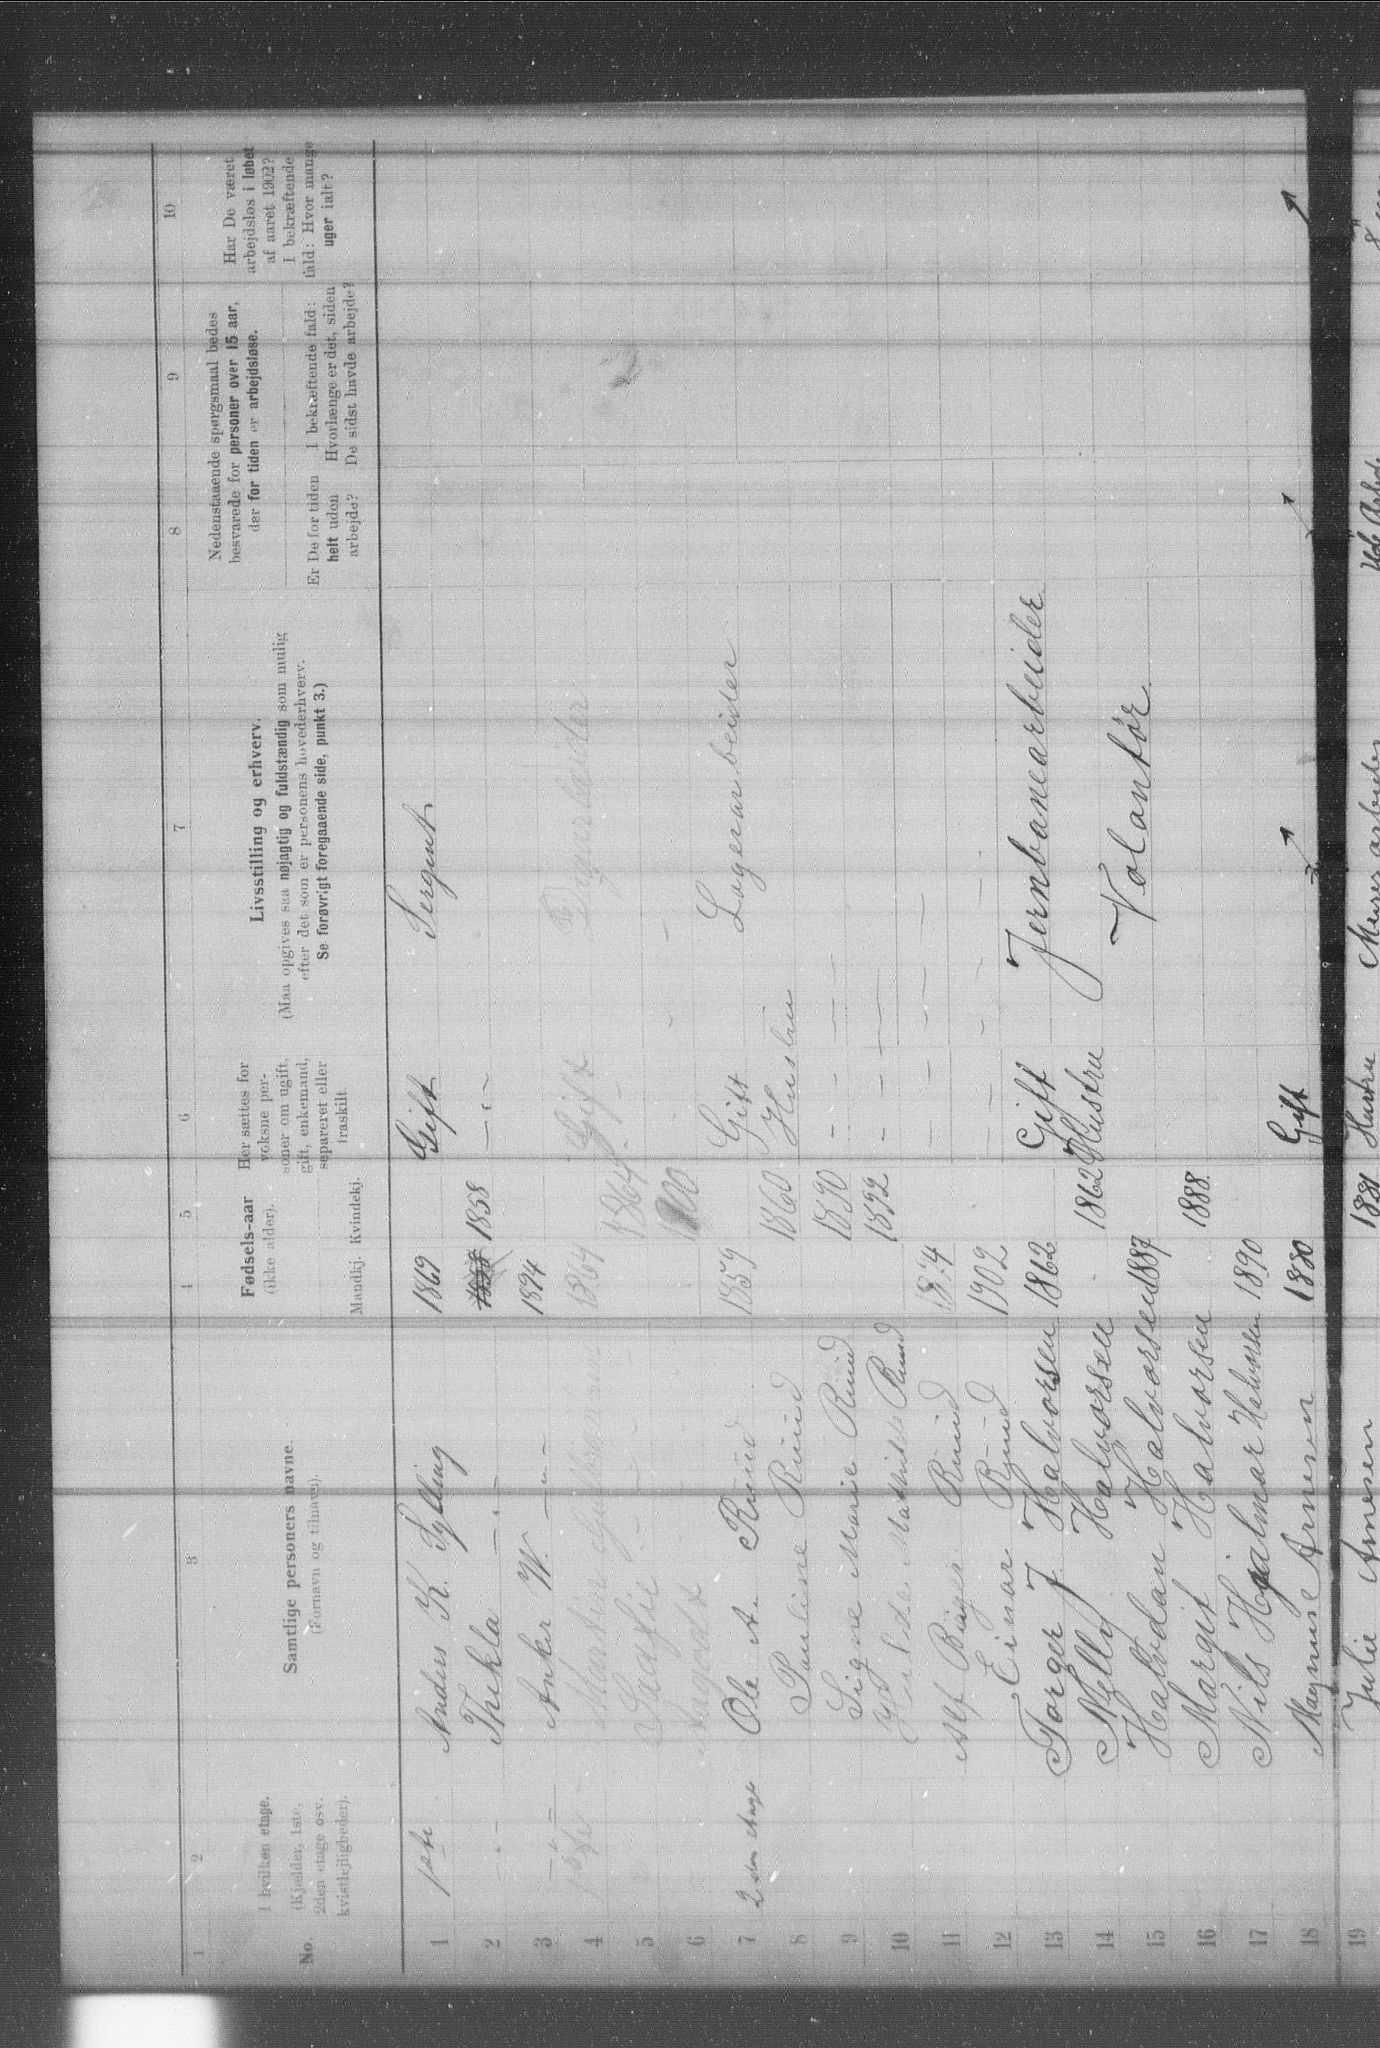 1 2 3 4 5 6 7 8 9 10
No.
I hvilken etage.
(Kjælder, 1ste,
2den etage osv.
kvistlejligheder).
Samtlige personers navne.
(Fornavn og tilnavn).
Fødsels-aar
(ikke alder).
Mandkj. Kvindekj.
Her sættes for
voksne per-
soner om ugift,
gift, enkemand,
separeret eller
fraskilt.
Livsstilling og erhverv.
(Maa opgives saa nøjagtig og fuldstændig som mulig
efter det som er personens hovederhverv.
Se forøvrigt foregaaende side, punkt 3.)
Nedenstaaende spørgsmaal bedes
besvarede for personer over 15 aar,
der for tiden er arbejdsløse.
Er De for tiden
helt uden
arbejde?
I bekræftende fald:
Hvorlænge er det, siden
De sidst havde arbejde?
Har De været
arbejdsløs i løbet
af aaret 1902?
I bekræftende
fald: Hvor mange
uger ialt?
1 1ste Anders K. Sylling 1869 Gift Sergent
2 - " - Thekla - " - 1858 - " -
3 - " - Anker W. - " - 1894
4 1ste Martin 1864 Gift
5 1864
6 Aagodt
7 2den etage Ole A. Ruud 1859 Gift Lagerarbeider
8 Pauline Ruud 1860 Hustru
9 Signe Marie Ruud 1890 - - - -
10 Hulda Mathilde Ruud 1892 - - - -
11 Alf Birger Ruud - - - -
12 Einar Ruud 1902 - - - -
13 Torger J Halvorsen 1862 Gift Jernbanearbeider
14 Nelly Halvorsen 1862 Hustru
15 Halvdan Halvorsen 1887 Volantør
16 Margit Halvorsen 1888.
17 Nils Hjalmar Halvorsen 1890
18 Magnus Arnesen 1880 Gift
19 Julie Arnesen 1881 Hustru Murerarbeider